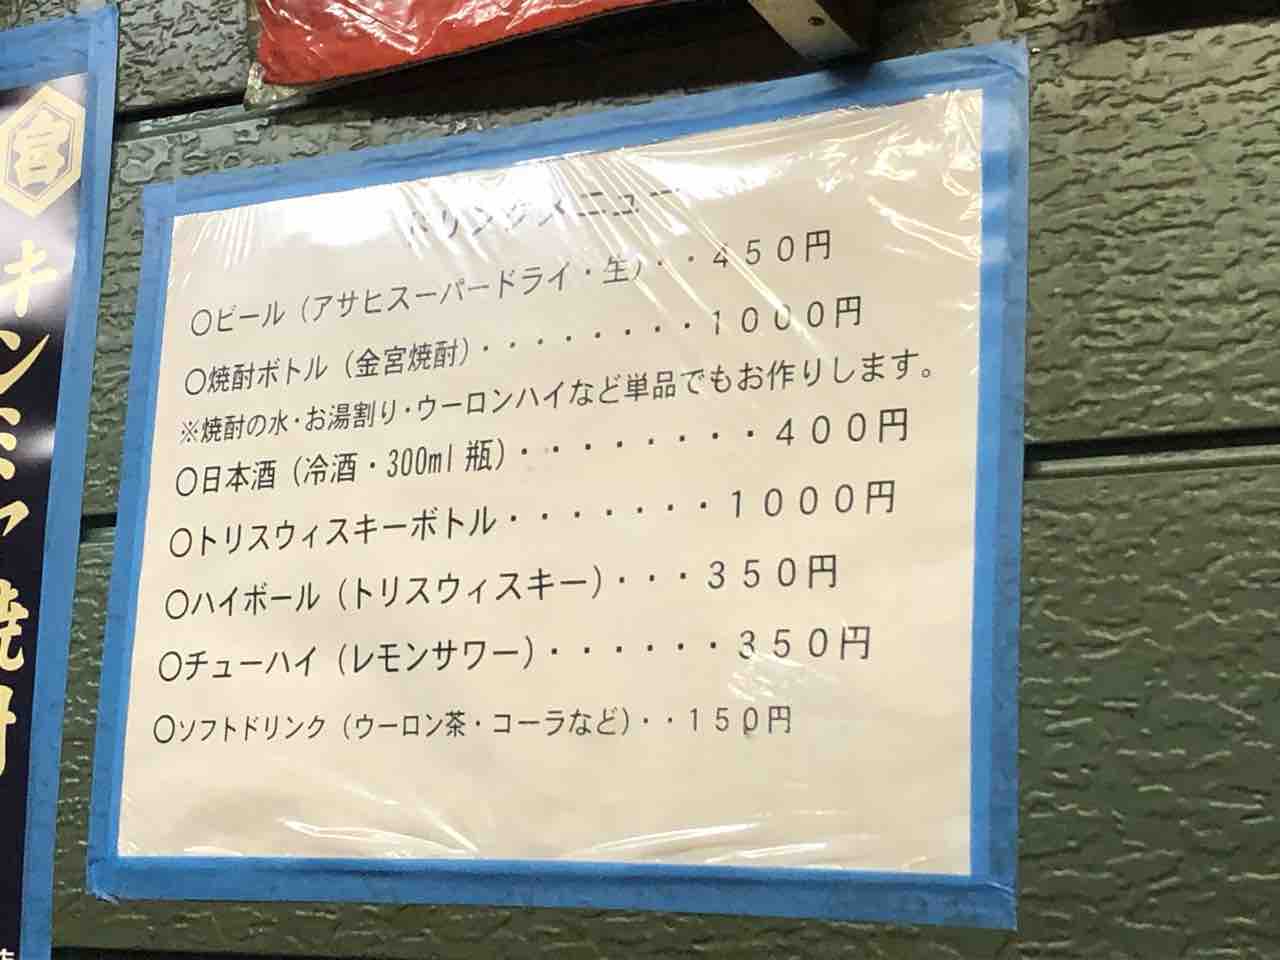 ドリンクメニュー
〇ビール（アサヒスーパードライ・生）・・４５０円
〇焼酎ボトル（金宮焼酎）・・・・・・・・１０００円
※焼酎の水・お湯割り・ウーロンハイなど単品でもお作りします。
〇日本酒（冷酒・300ml瓶）・・・・・・・・４００円
〇トリスウィスキーボトル・・・・・・・１０００円
〇ハイボール（トリスウィスキー）・・・３５０円
〇チューハイ（レモンサワー）・・・・・・３５０円
〇ソフトドリンク（ウーロン茶・コーラなど）・・１５０円
宮
キンミヤ焼酎